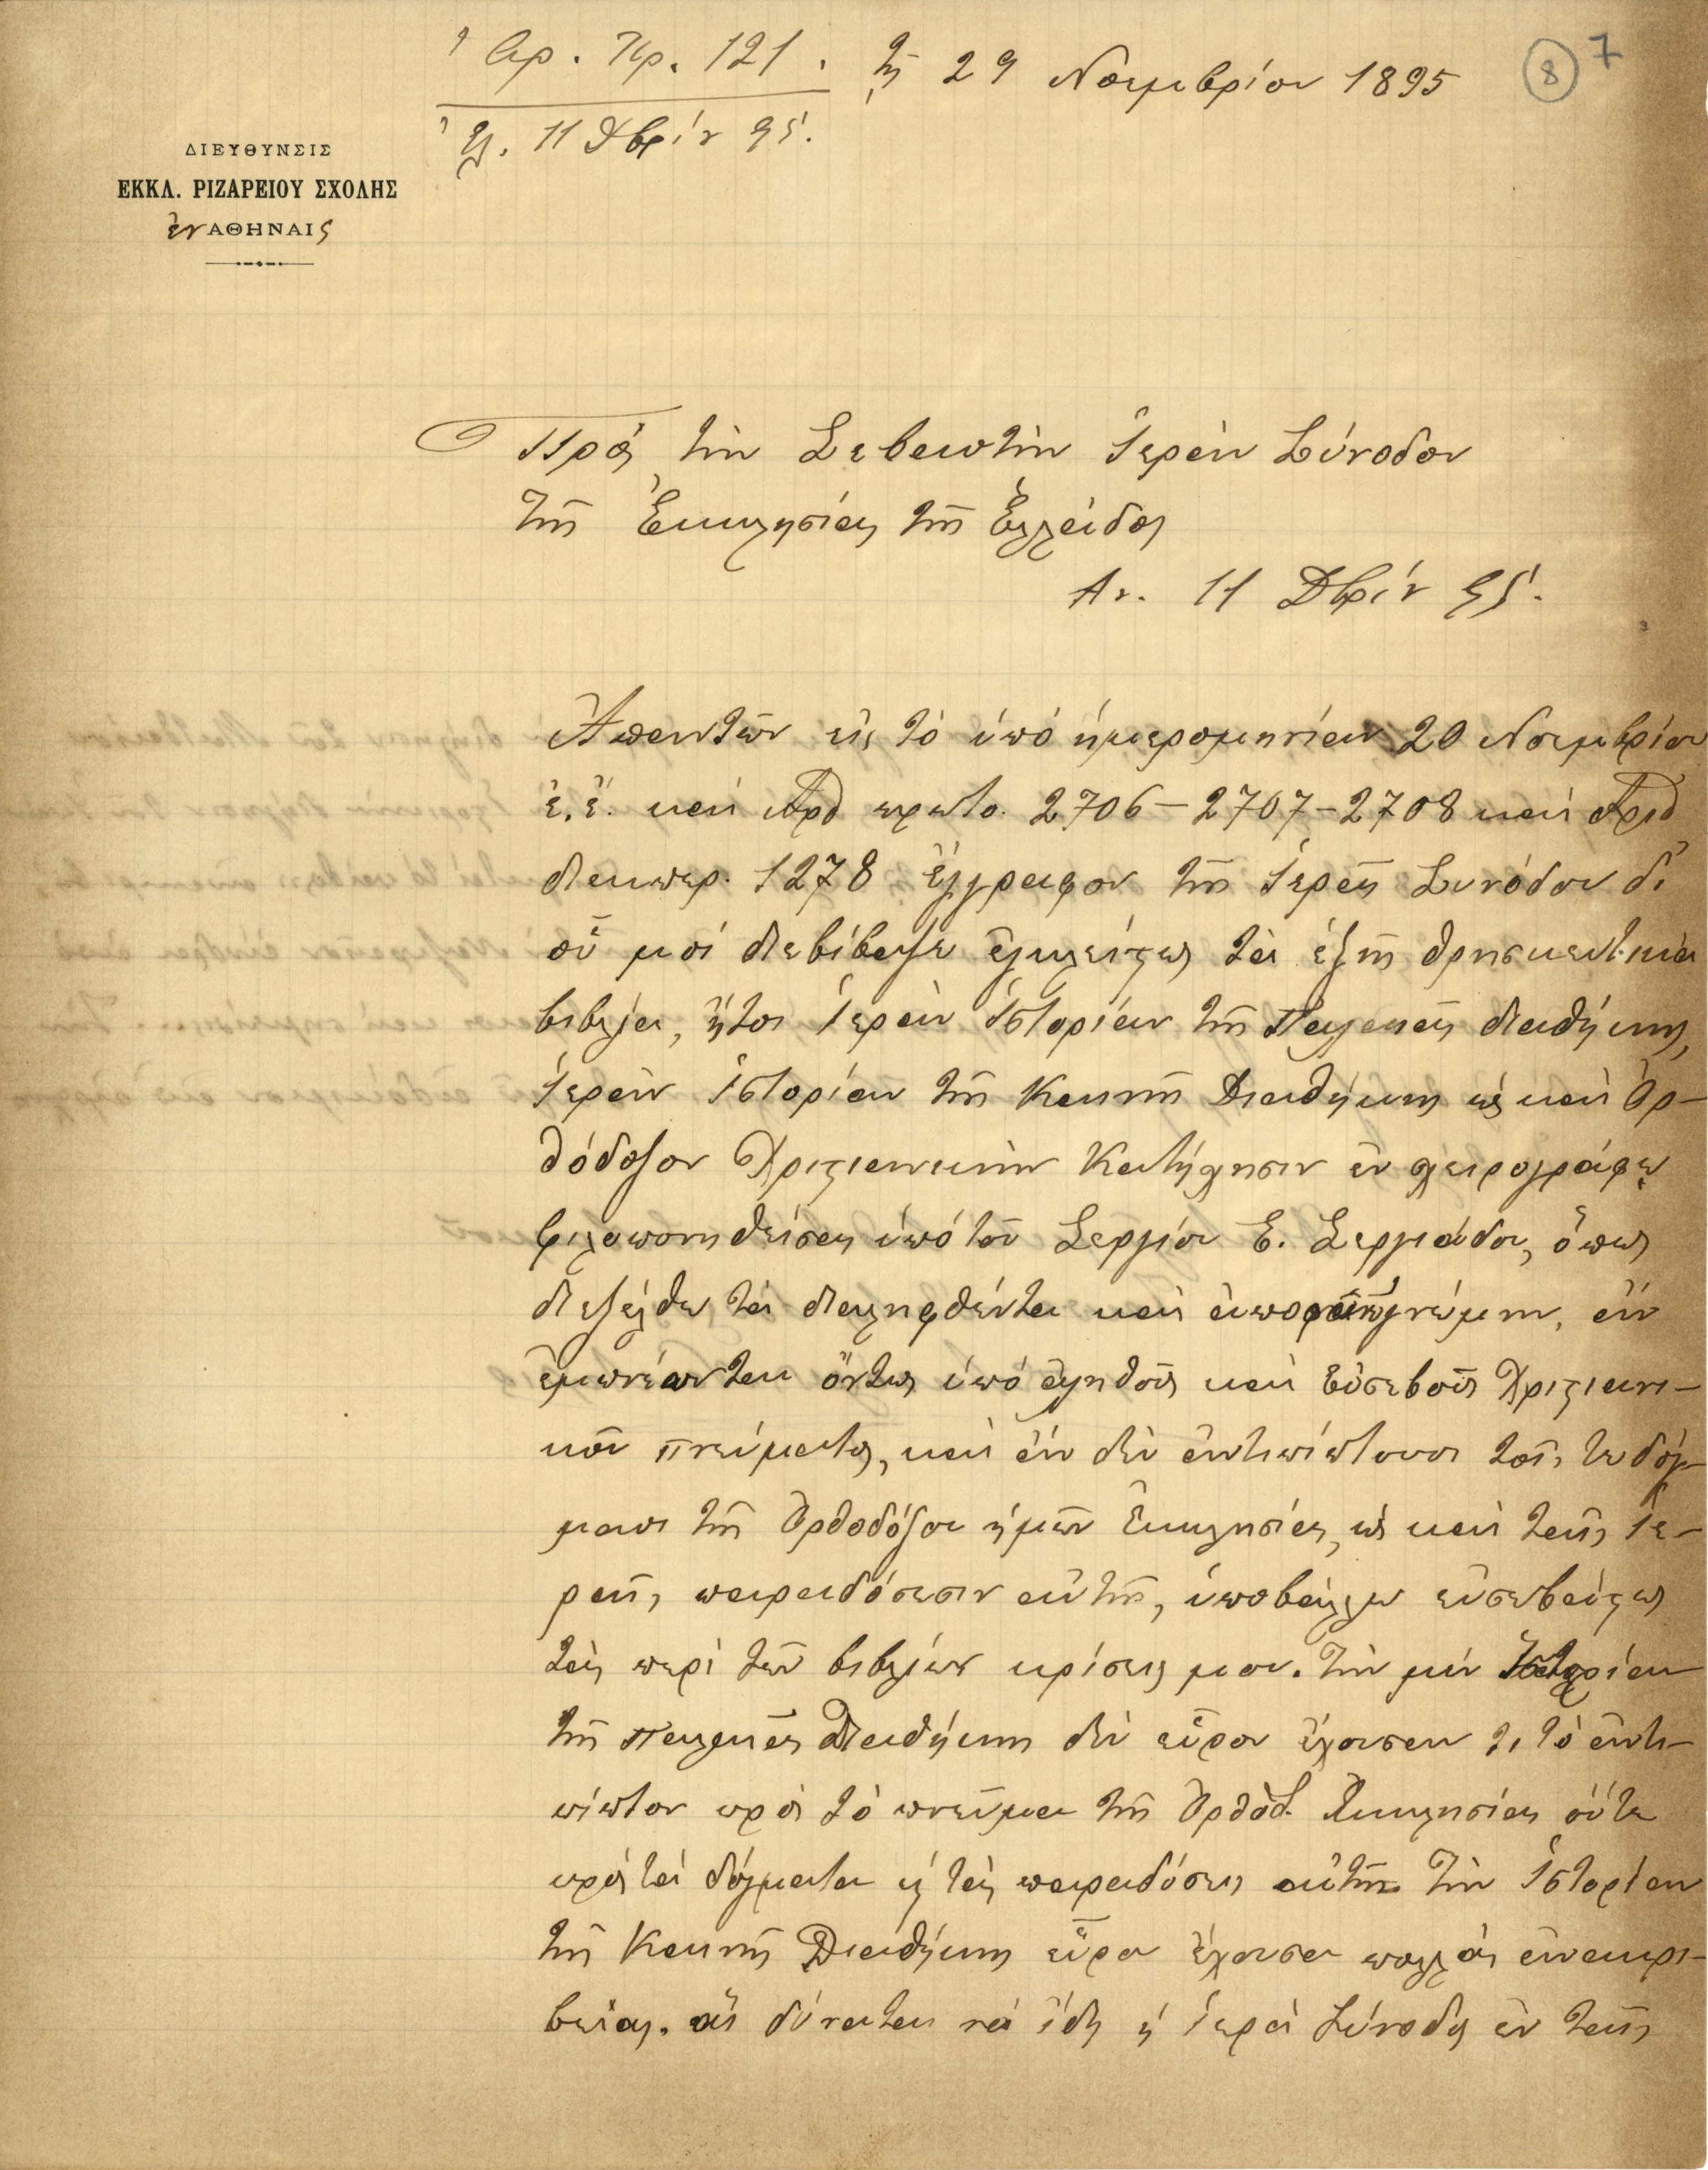 Ἀρ. Πρ. 121. τῇ 29 Νοεμβρίου 1895
8 7
Ἐλ. 11 Δβρίου 95.
ΔΙΕΥΘΥΝΣΙΣ
ΕΚΚΛ. ΡΙΖΑΡΕΙΟΥ ΣΧΟΛΗΣ
ἐν ΑΘΗΝΑΙς
Πρὸς τὴν Σεβαστὴν Ἱερὰν Σύνοδον
τῆς Ἐκκλησίας τῆς Ἑλλάδος
Ἀν. 11 Δβρίου 95.
Ἀπαντῶν εἰς τὸ ὑπὸ ἡμερομηνίαν 20 Νοεμβρίου
ἐ.ἔ. καὶ Ἀριθ πρωτο. 2706–2707–2708 καὶ Ἀριθ
διεκπερ. 1278 ἔγγραφον τῆς Ἱερᾶς Συνόδου δι'
οὗ μοὶ διεβίβασε ἐγκλείστως τὰ ἑξῆς θρησκευτικὰ
βιβλία, ἤτοι Ἱερὰν Ἱστορίαν τῆς Παλαιᾶς διαθήκης,
Ἱερὰν Ἱστορίαν τῆς Καινῆς Διαθήκης ὡς καὶ Ὀρ–
θόδοξον Χριστιανικὴν Κατήχησιν ἐν χειρογράφῳ
φιλοπονηθείσας ὑπὸ τοῦ Σεργίου Σ. Σεργιάδου, ὅπως
διεξέλθω τὰ διαληφθέντα καὶ ἀποφανῶ γνώμην, ἐὰν
ἐμπνέωνται ὄντως ὑπὸ ἀληθοῦς καὶ Εὐσεβοῦς Χριστιανι–
κοῦ πνεύματος, καὶ ἐὰν δὲν ἀντιπίπτουσι τοῖς τε δόγ–
μασι τῆς Ὀρθοδόξου ἡμῶν Ἐκκλησίας, ὡς καὶ ταῖς ἱε–
ραῖς παραδόσεσιν αὐτῆς, ὑποβάλλω εὐσεβάστως
τὰς περὶ τῶν βιβλίων κρίσεις μου. Τὴν μὲν Ἱστορίαν
τῆς Παλαιᾶς Διαθήκης δὲν εὗρον ἔχουσαν τι τὸ ἀντι–
πίπτον πρὸς τὸ πνεῦμα τῆς Ὀρθοδ. Ἐκκλησίας οὔτε
πρὸς τὰ δόγματα ἢ τὰς παραδόσεις αὐτῆς. Τὴν Ἱστορίαν
τῆς Καινῆς Διαθήκης εὗρον ἔχουσα πολλὰς ἀνακρι–
βείας. ἃς δύναται νὰ ἴδῃ ἡ Ἱερὰ Σύνοδος ἐν ταῖς